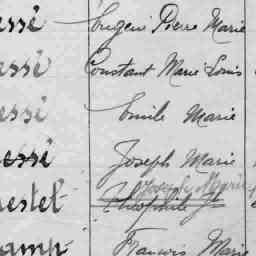 essé Eugène Pierre Marie
essé Constant Marie Louis
essé Emile Marie
essé Joseph Marie
Joseph Marie
estel Théophile Jh
amp François Marie